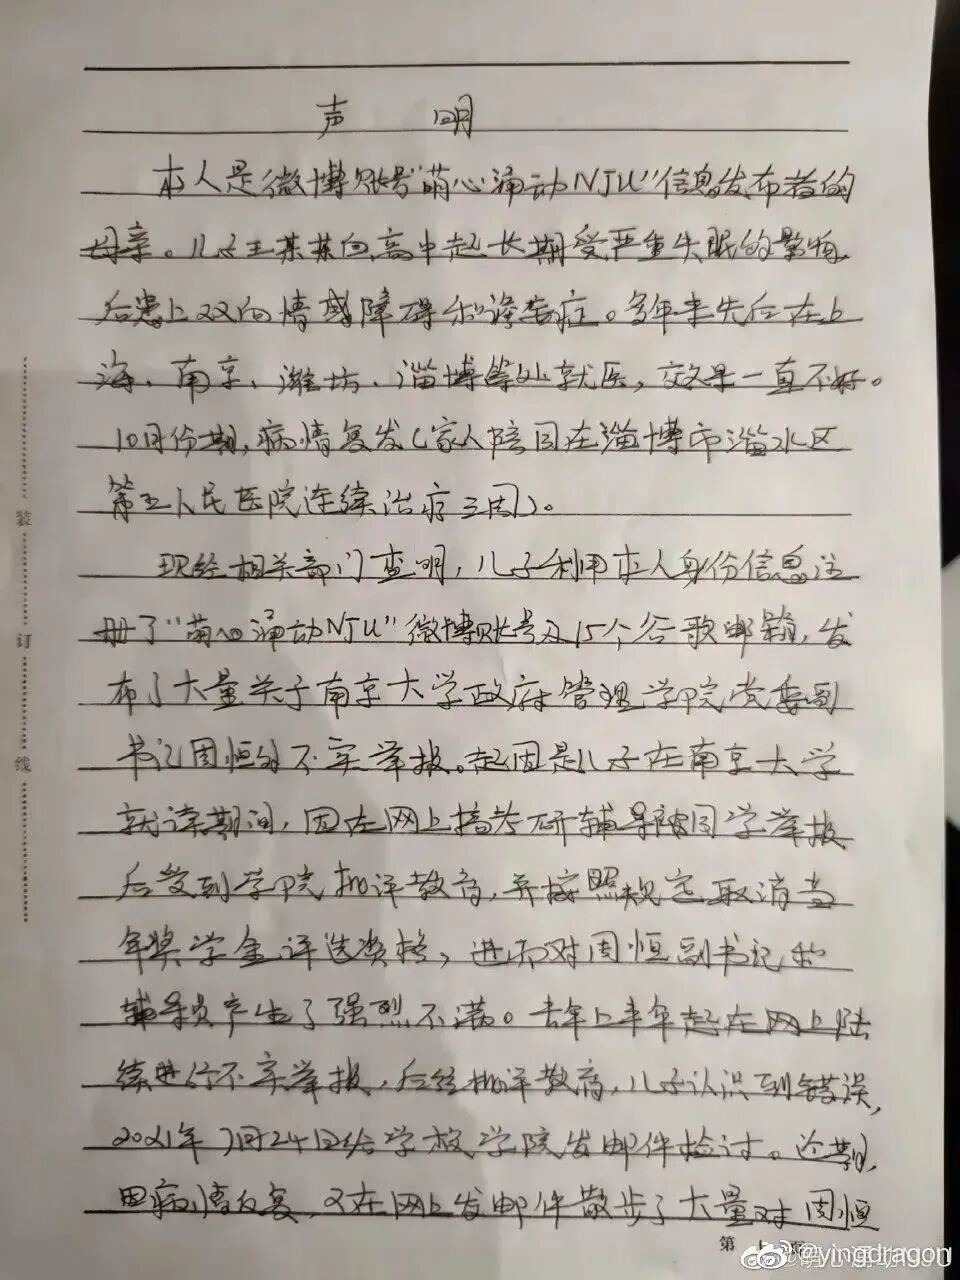 声 明
本人是微博账号“萌心涌动NJU”信息发布者的
母亲。儿子王某某自高中起长期受严重失眠的影响,
后患上双向情感障碍和谵妄症。多年来先后在上
海、南京、潍坊、淄博等处就医,效果一直不好。
10月份期,病情复发(家人陪同在淄博市淄水区
第五人民医院连续治疗三周)。
现经相关部门查明,儿子利用本人身份信息注
册了“萌心涌动NJU”微博账号及15个谷歌邮箱,发
布了大量关于南京大学政府管理学院党委副
书记周恒的不实举报。起因是儿子在南京大学
就读期间,因在网上搞考研辅导被同学举报
后受到学院批评教育,并按照规定取消当
年奖学金评选资格,进而对周恒副书记和
辅导员产生了强烈不满。去年上半年起在网上陆
续进行不实举报,后经批评教育,儿子认识到错误,
2021年7月24日给学校学院发邮件检讨。近期,
因病情反复,又在网上发邮件散步了大量对周恒
装
订
线
第 页
@yingdragon